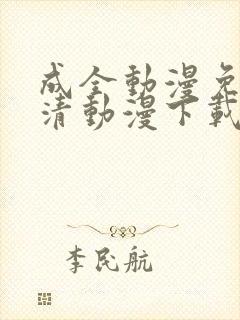 成全動漫免
清動漫下載
李民航